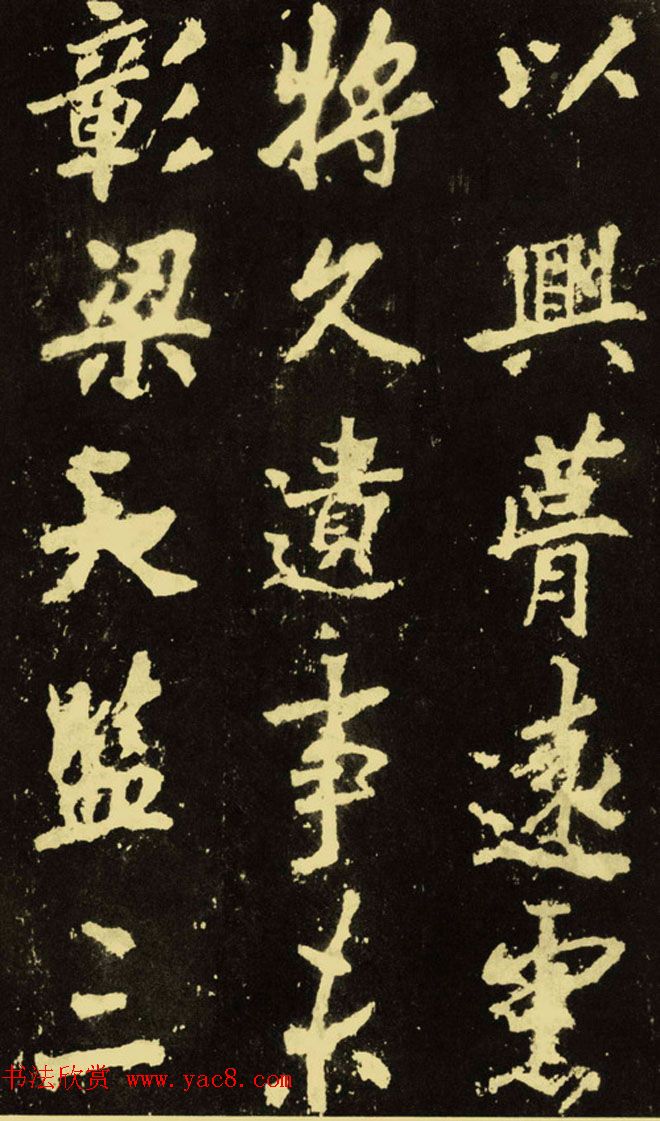 以興遠
將久遺事未
彰梁天監三
书法欣赏 www.yac8.com